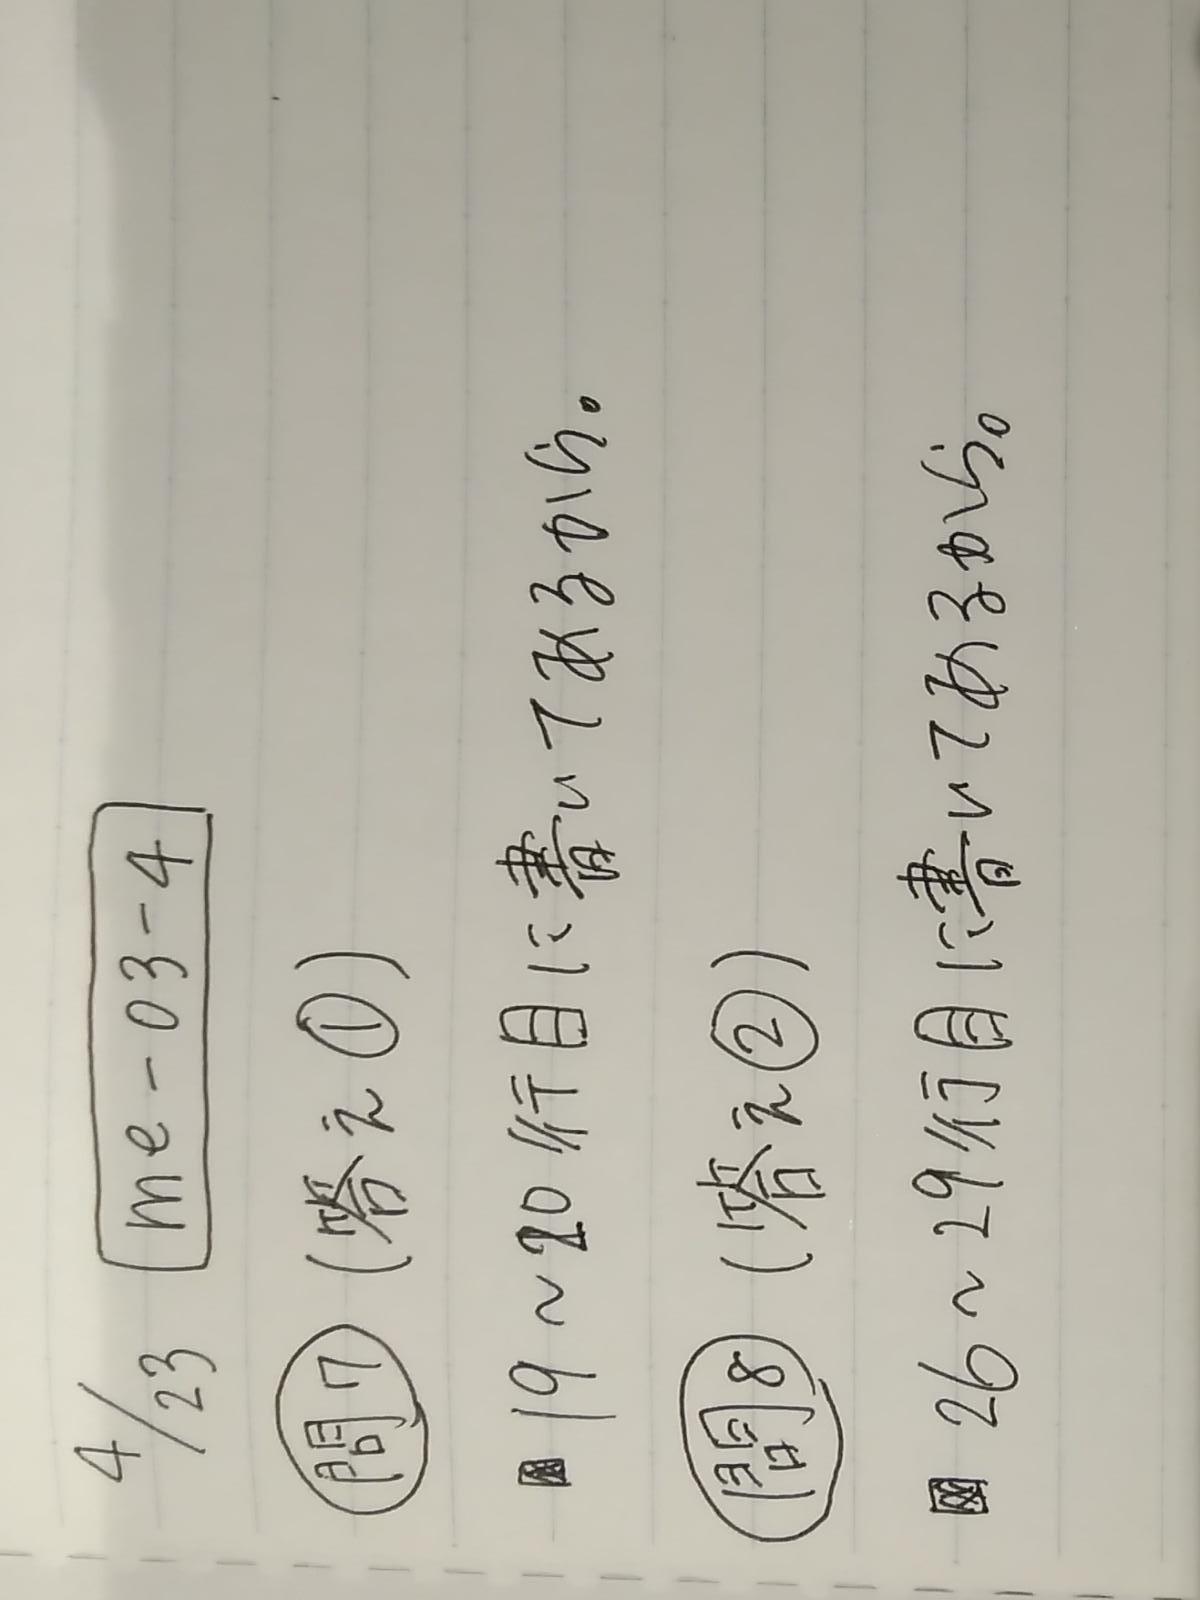 4/23 me-03-4
問7 (答え①)
■19~20行目に書いてあるから。
問8 (答え②)
■26~29行目に書いてあるから。